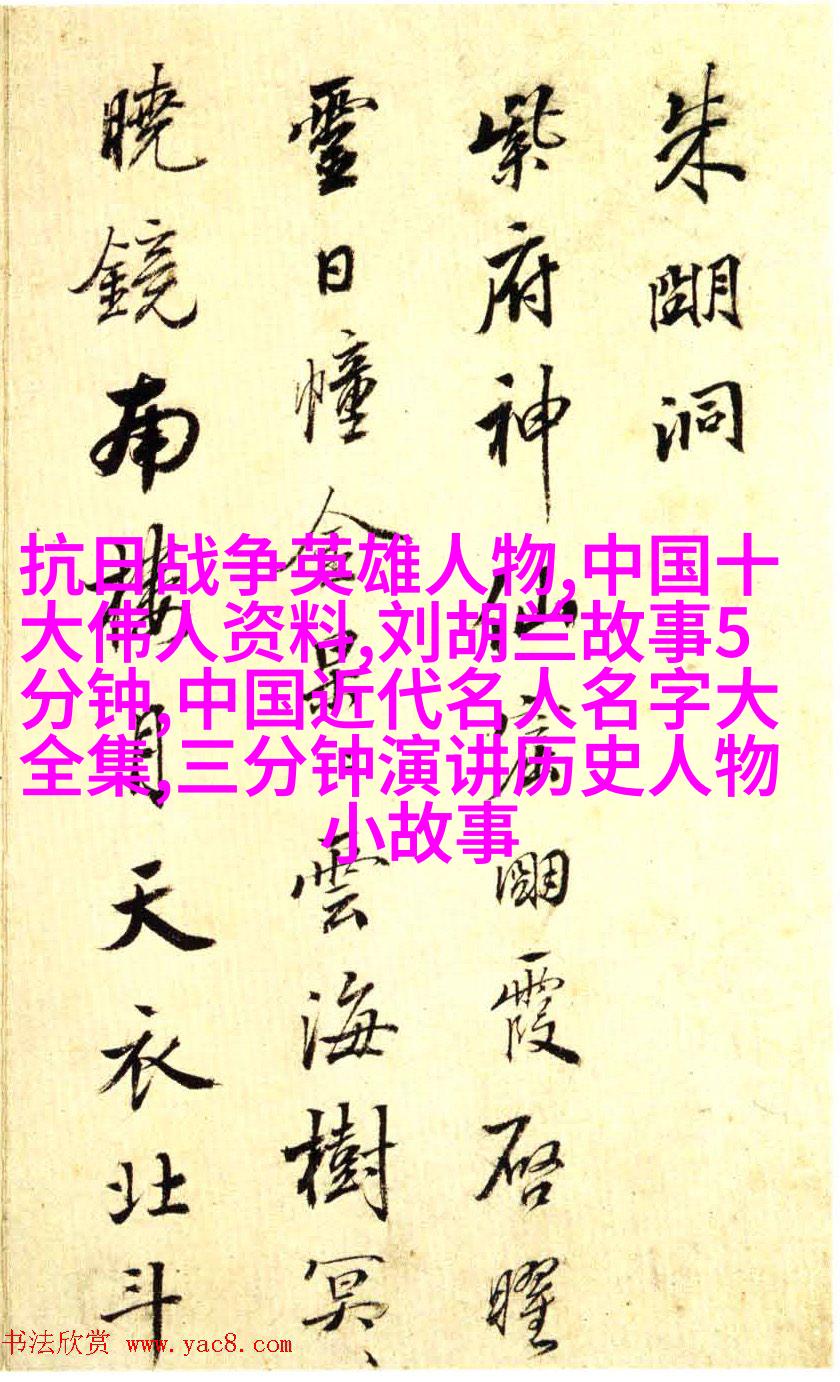 朱朙洞
紫府神仙朙霞啓曜
靈日幢金景雲海樹冥、
曉鏡南樓月天衣北斗
抗日战争英雄人物,中国十
大伟人资料,刘胡兰故事5
分钟,中国近代名人名字大
全集,三分钟演讲历史人物
小故事
书法欣赏 www.yac8.com